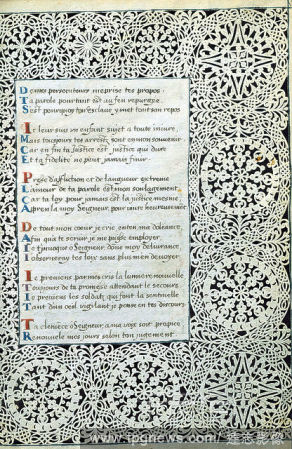 De mes persecuteurs mesprise tes propos:
Ta parole pourtant est au feu repurgee,
C'est pourquoy ton esclaue y met tout son repos
Ie leur suis un enfant sujet a toute iniure,
Mais toujours tes arrests sont en mon souuenir
Car en fin ta Justice est justice qui dure
Et ta fidelité ne peut jamais finir.
Pressé d'affliction et de langueur extreme
L'amour de ta parole est mon soulagement,
Car ta loy pour jamais est la justice mesme,
Apren la moy Seigneur, pour viure heureusement
De tout mon coeur je crie, enten ma doleance,
Afin qu'a te seruir je me puisse employer
Je t'inuoque o Seigneur, done moy deliurance
I'obserueray tes loys sans plus m'en deuoyer.
Ie preuiens par mes cris la lumiere nouuelle
Toujours de ta promesse attendant le secours
Ie preuiens les soldats qui font la sentinelle
Tant d'un oeil vigilant je pense en tes discours
Ta clemence o Seigneur, a ma voix soit propice
Renouuele mes jours selon ton jugement.
www.ipgnews.com/